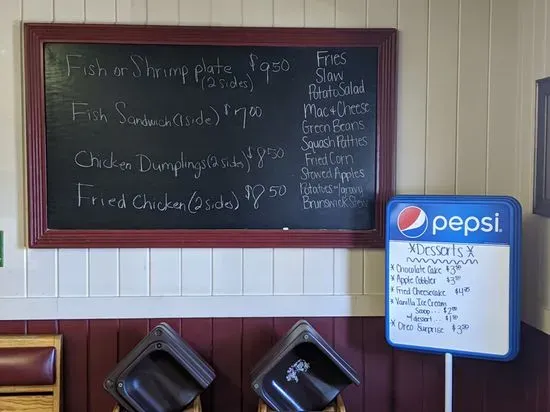 Fish or Shrimp plate $9.50
(2 sides)
Fish Sandwich (1 side) $7.00
Chicken Dumplings (2 sides) $8.50
Fried Chicken (2 sides) $8.50
Fries
Slaw
Potato Salad
Mac & Cheese
Green Beans
Squash Patties
Fried Corn
Stewed Apples
Potatoes - Gravy
Brunswick Stew
pepsi
Desserts
Chocolate Cake
Apple Cobbler
Fried Cheesecake
Vanilla Ice Cream
Scoop....
dessert....
Oreo Surprise